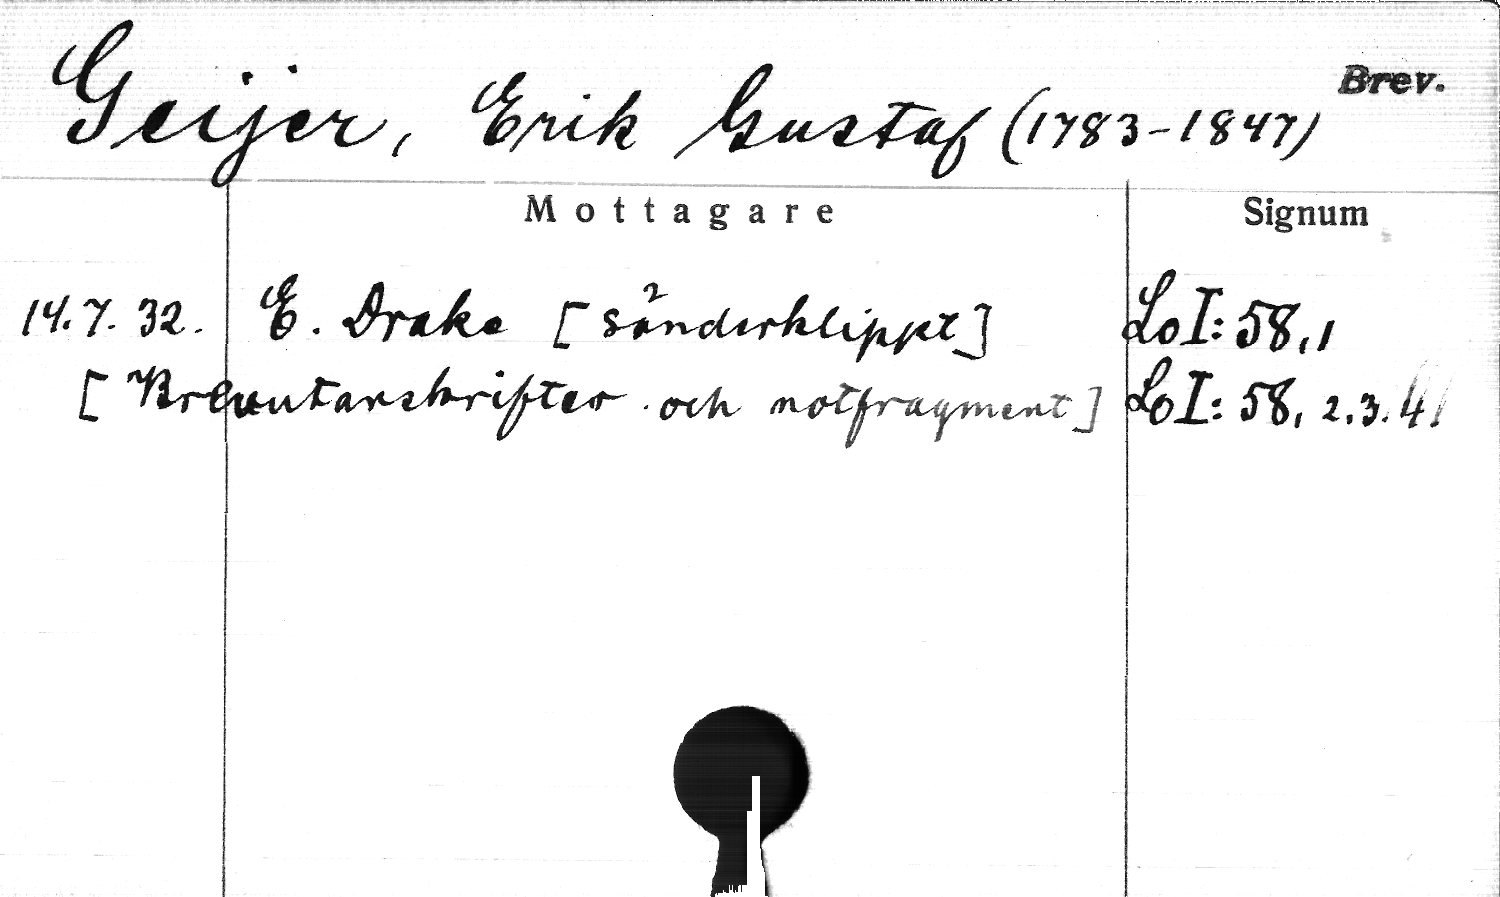 Brev.
Geijer, Erik Gustaf (1783-1847)
Mottagare Signum
14.7.32. E. Drake [sönderklippt] Lo I: 58,1
[Brevutanskrifter och notfragment] Lo I: 58, 2.3.4